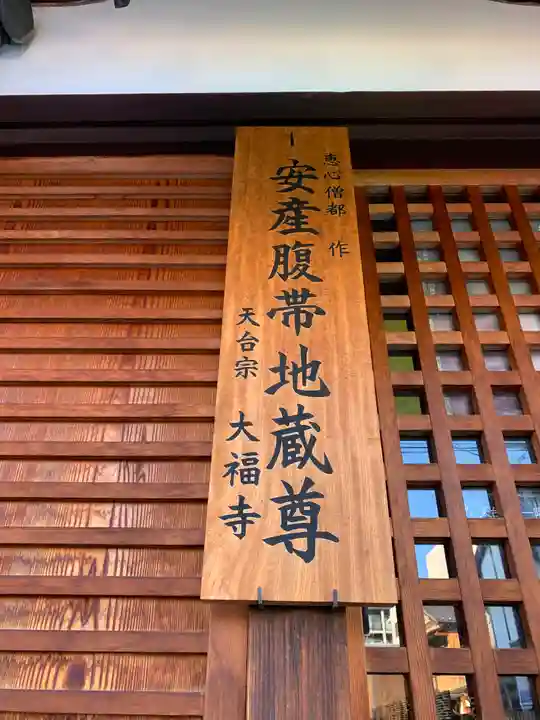 恵心僧都 作
安産腹帯地蔵尊
天台宗 大福寺